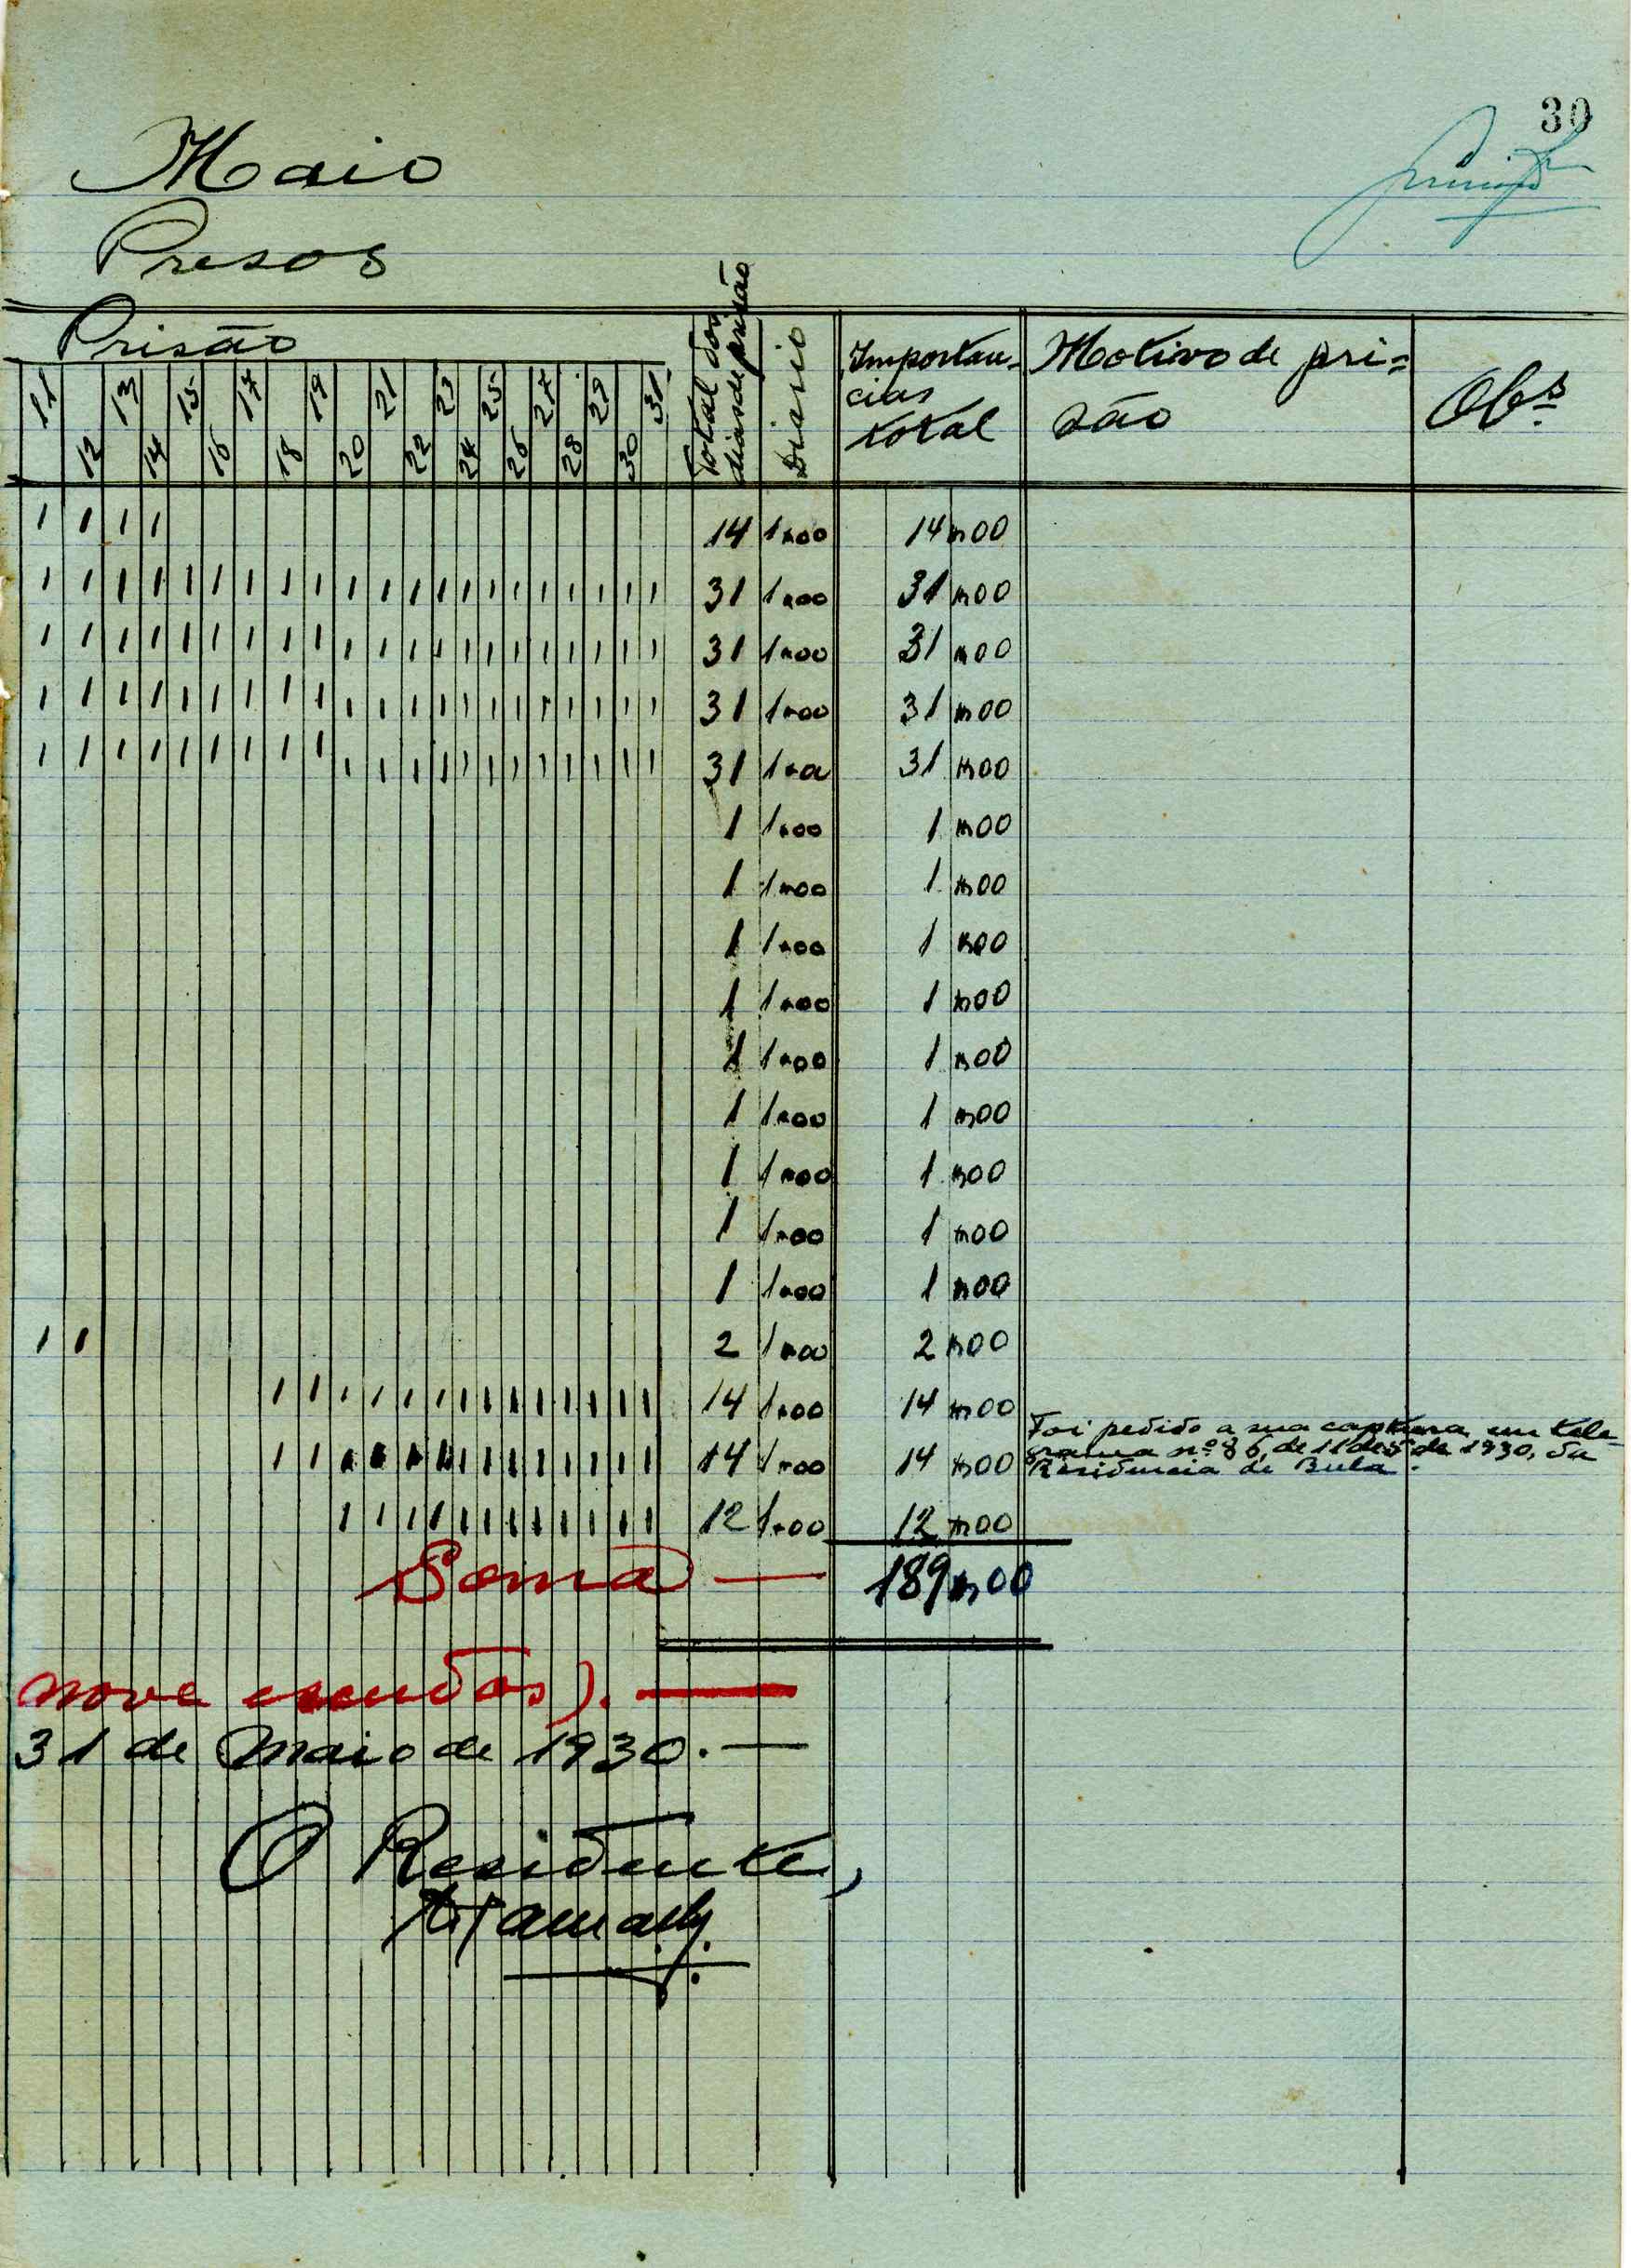 30
Maio
Presos
Prisão
11 12 13 14 15 16 17 18 19 20 21 22 23 24 25 26 27 28 29 30 31
Total dos dias de prisão
Diario
Importan-
cias
total
Motivo de pri=
são
Obs
1 1 1 1 14 1$00 14$00
1 1 1 1 1 1 1 1 1 1 1 1 1 1 1 1 1 1 1 1 1 31 1$00 31$00
1 1 1 1 1 1 1 1 1 1 1 1 1 1 1 1 1 1 1 1 1 31 1$00 31$00
1 1 1 1 1 1 1 1 1 1 1 1 1 1 1 1 1 1 1 1 1 31 1$00 31$00
1 1 1 1 1 1 1 1 1 1 1 1 1 1 1 1 1 1 1 1 1 31 1$00 31$00
1 1$00 1$00
1 1$00 1$00
1 1$00 1$00
1 1$00 1$00
1 1$00 1$00
1 1$00 1$00
1 1$00 1$00
1 1$00 1$00
1 1$00 1$00
1 1 2 1$00 2$00
1 1 1 1 1 1 1 1 1 1 1 1 1 1 14 1$00 14$00
1 1 1 1 1 1 1 1 1 1 1 1 1 1 14 1$00 14$00
Foi pedido a sua captura em tele-
grama nº 86, de 11 de 5 de 1930, da
Residencia de Bula.
1 1 1 1 1 1 1 1 1 1 1 1 12 1$00 12$00
Soma — 189$00
nove escudos). —
31 de Maio de 1930. —
O Residente,